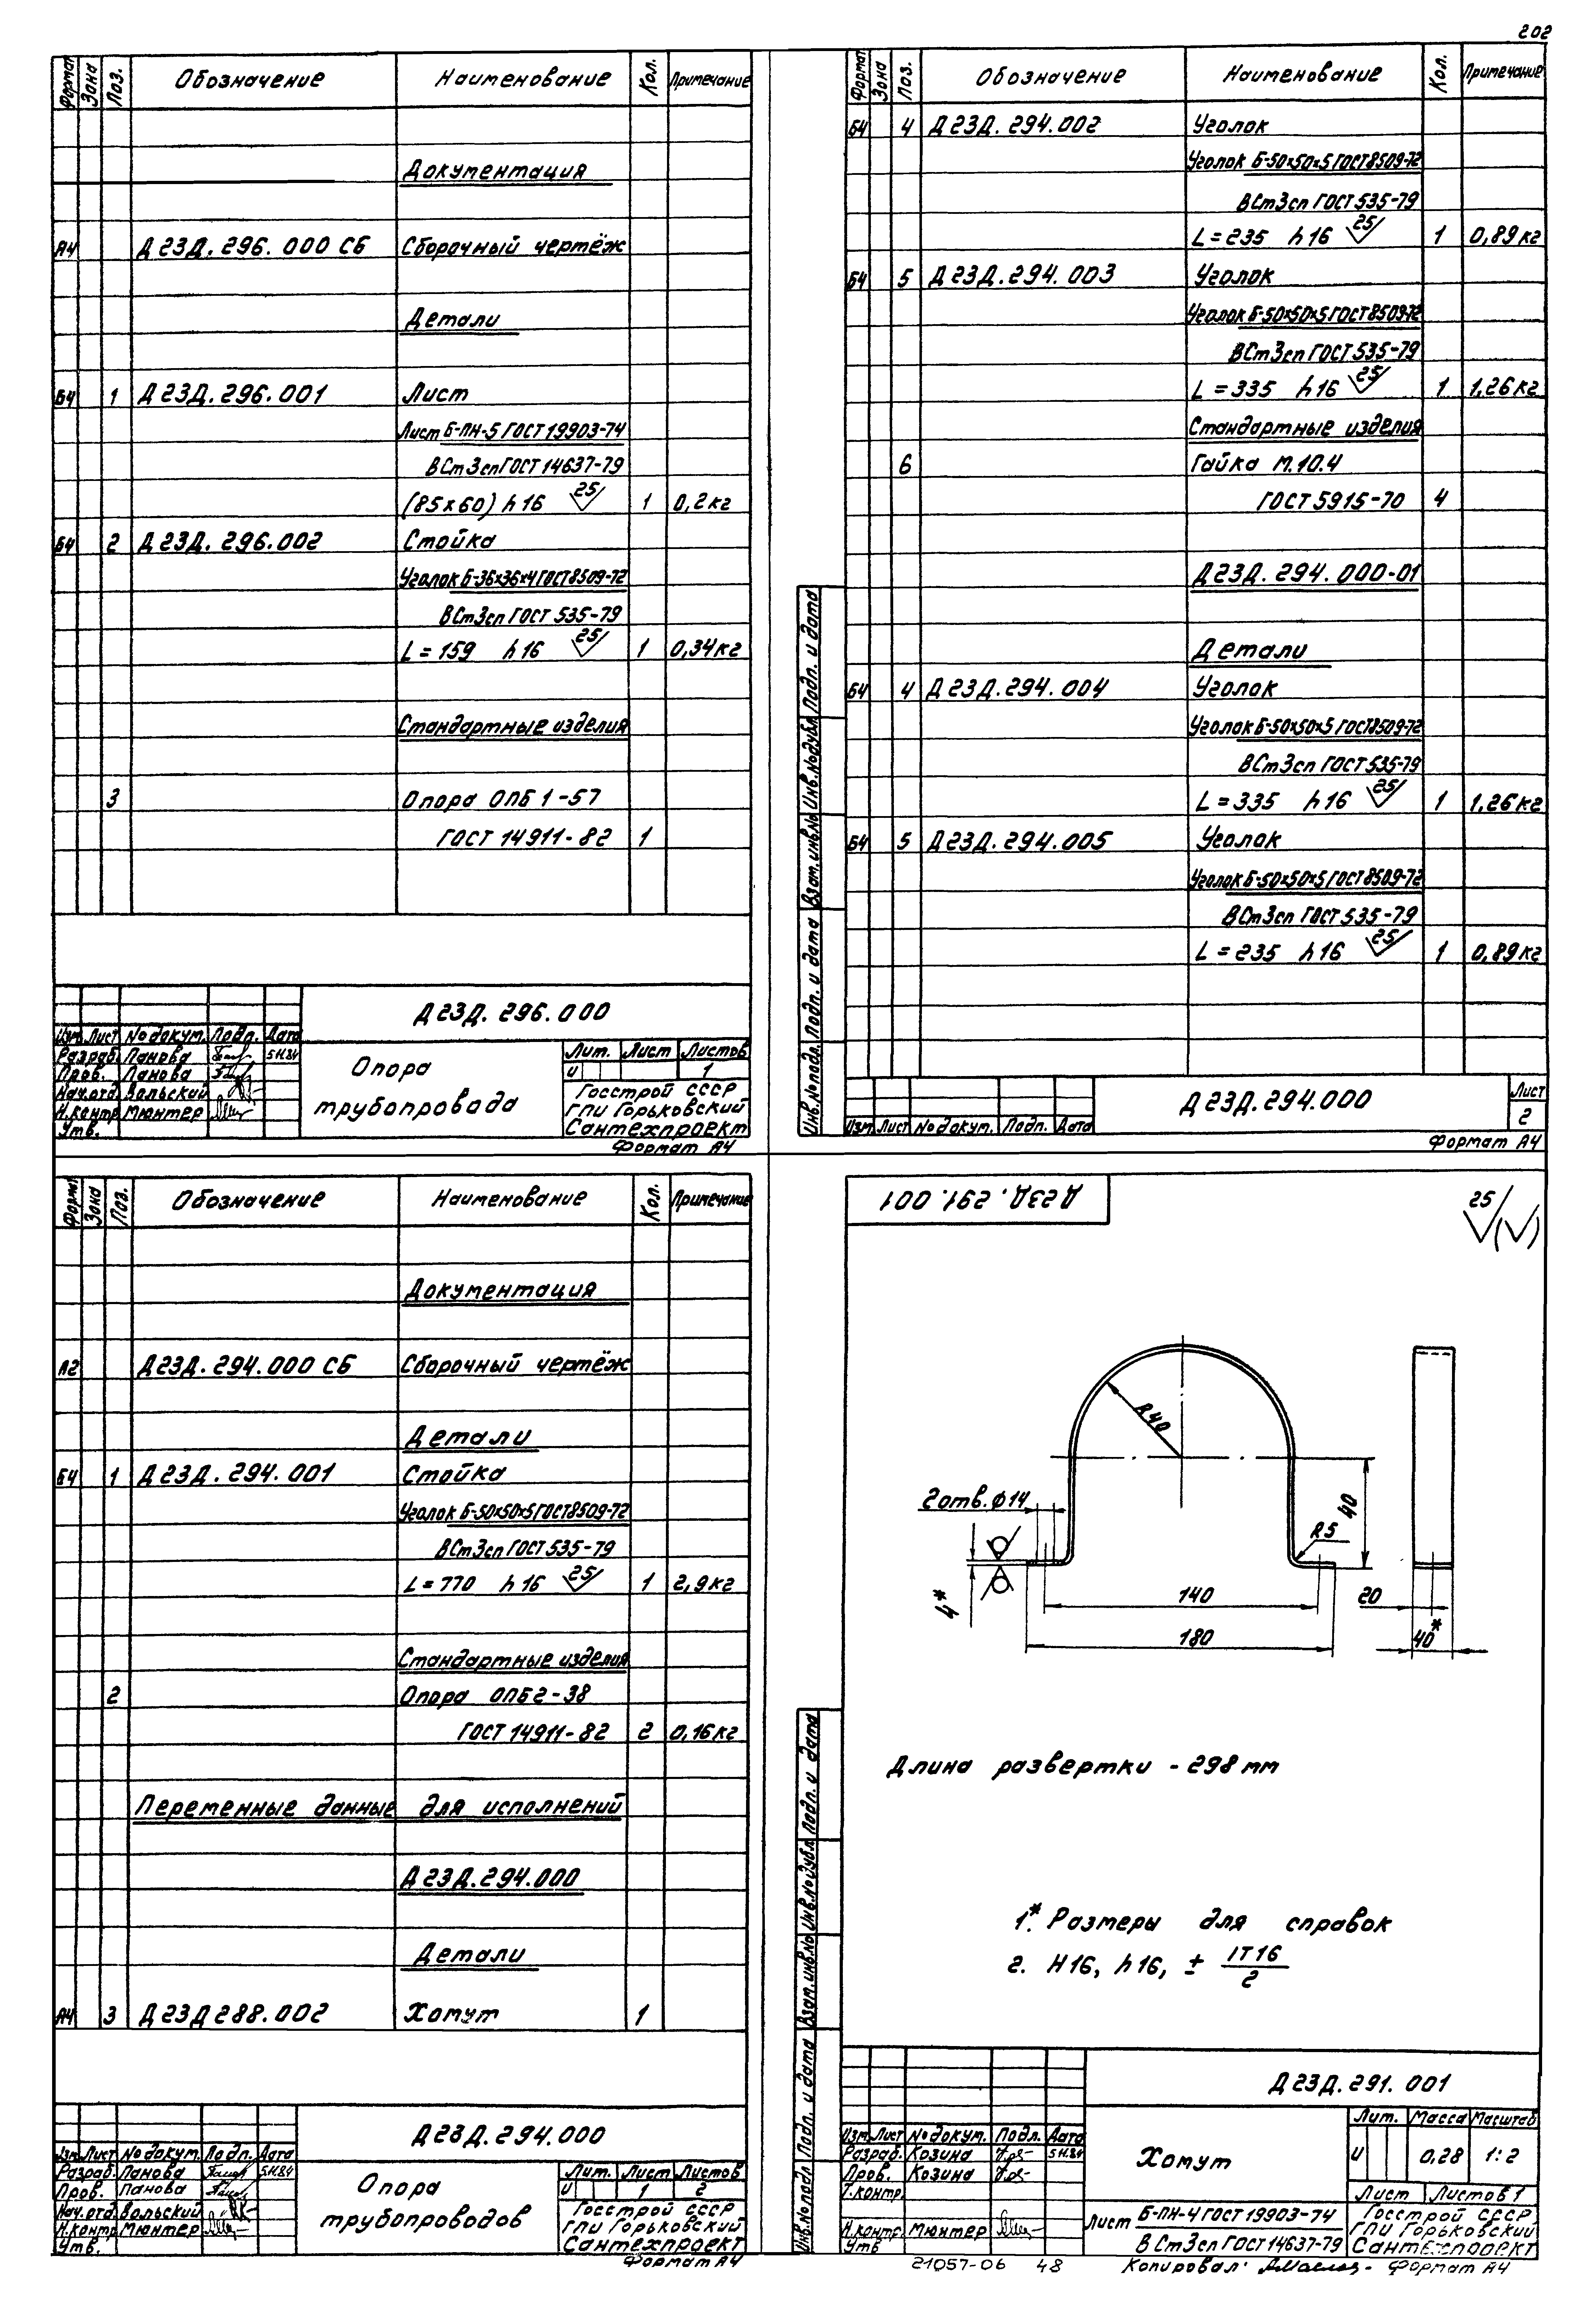 202
Формат Зона Поз. Обозначение Наименование Кол. Примечание
Документация
А4 Д23Д.296.000 СБ Сборочный чертёж
Детали
Б4 1 Д23Д.296.001 Лист
Лист Б-ПН-5 ГОСТ 19903-74
ВСт3сп ГОСТ 14637-79
(85х60) h16 25 1 0,2кг
Б4 2 Д23Д.296.002 Стойка
Уголок Б-36х36х4 ГОСТ 8509-72
ВСт3сп ГОСТ 535-79
L=159 h16 25 1 0,34кг
Стандартные изделия
3 Опора ОПБ1-57
ГОСТ 14911-82 1
Д23Д.296.000
Изм. Лист № докум. Подп. Дата
Разраб. Панова 5.11.84
Пров. Панова
Нач.отд. Вольский
Н.контр. Мюнтер
Утв.
Опора
трубопровода
Лит. Лист Листов
И 1
Госстрой СССР
ГПИ Горьковский
Сантехпроект
Формат А4
Формат Зона Поз. Обозначение Наименование Кол. Примечание
Б4 4 Д23Д.294.002 Уголок
Уголок Б-50х50х5 ГОСТ 8509-72
ВСт3сп ГОСТ 535-79
L=235 h16 25 1 0,89кг
Б4 5 Д23Д.294.003 Уголок
Уголок Б-50х50х5 ГОСТ 8509-72
ВСт3сп ГОСТ 535-79
L=335 h16 25 1 1,26кг
Стандартные изделия
6 Гайка М.10.4
ГОСТ 5915-70 4
Д23Д.294.000-01
Детали
Б4 4 Д23Д.294.004 Уголок
Уголок Б-50х50х5 ГОСТ 8509-72
ВСт3сп ГОСТ 535-79
L=335 h16 25 1 1,26кг
Б4 5 Д23Д.294.005 Уголок
Уголок Б-50х50х5 ГОСТ 8509-72
ВСт3сп ГОСТ 535-79
L=235 h16 25 1 0,89кг
Инв.№ подл. Подп. и дата Взам.инв.№ Инв.№ дубл. Подп. и дата
Изм Лист № докум. Подп. Дата
Д23Д.294.000
Лист
2
Формат А4
Формат Зона Поз. Обозначение Наименование Кол. Примечание
Документация
А2 Д23Д.294.000 СБ Сборочный чертёж
Детали
Б4 1 Д23Д.294.001 Стойка
Уголок Б-50х50х5 ГОСТ 8509-72
ВСт3сп ГОСТ 535-79
L=770 h16 25 1 2,9кг
Стандартные изделия
2 Опора ОПБ2-38
ГОСТ 14911-82 2 0,16кг
Переменные данные для исполнений
Д23Д.294.000
Детали
А4 3 Д23Д288.002 Хомут 1
Д23Д.294.000
Изм Лист № докум. Подп. Дата
Разраб. Панова 5.11.84
Пров. Панова
Нач.отд. Вольский
Н.контр. Мюнтер
Утв.
Опора
трубопроводов
Лит. Лист Листов
И 1 2
Госстрой СССР
ГПИ Горьковский
Сантехпроект
Формат А4
Д23Д.291.001
25 (√)
R40
2 отв. ф14
40
R5
4*
140
20
180
40*
Длина развертки - 298 мм
1.* Размеры для справок
2. H16, h16, ± IT16/2
Инв.№ подл Подп. и дата Взам.инв.№ Инв.№ дубл. Подп. и дата
Д23Д.291.001
Изм Лист № докум. Подп. Дата
Разраб. Козина 5.11.84
Пров. Козина
Т.контр.
Н.контр. Мюнтер
Утв
Хомут
Лит. Масса Масштаб
И 0,28 1:2
Лист Листов 1
Лист Б-ПН-4 ГОСТ 19903-74
ВСт3сп ГОСТ 14637-79
Госстрой СССР
ГПИ Горьковский
Сантехпроект
21057-06 48
Копировал: Формат А4